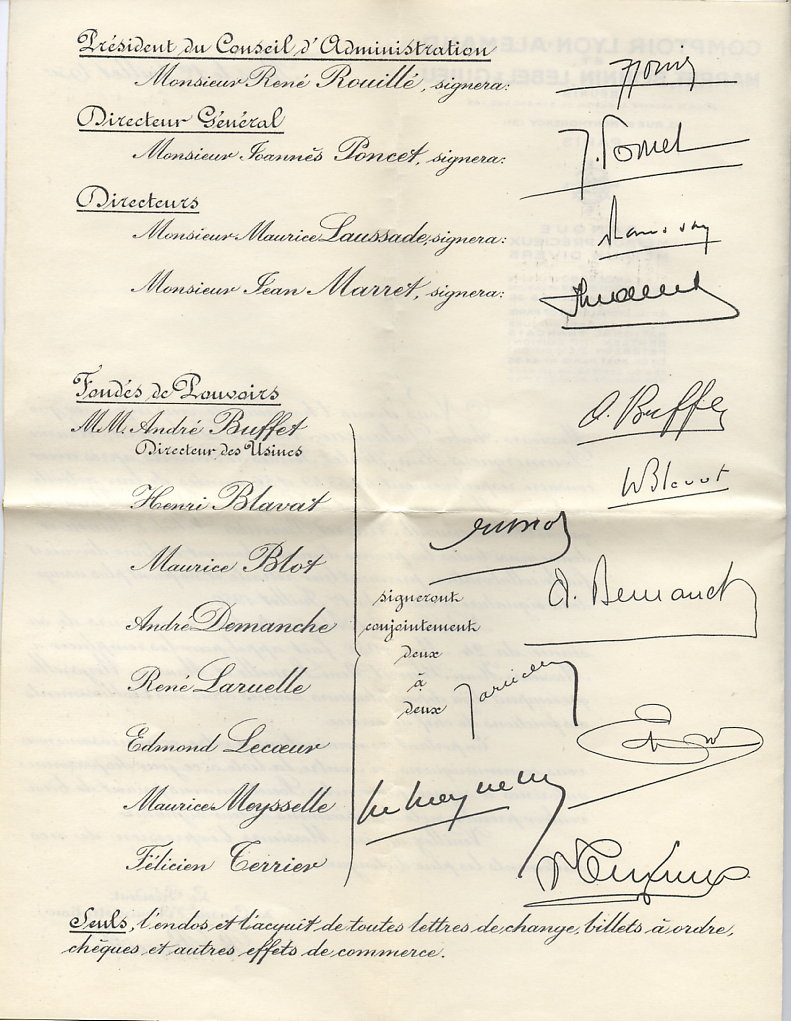 Président du Conseil d'Administration
Monsieur René Rouillé, signera:
Directeur Général
Monsieur Joannès Poncet, signera:
Directeurs
Monsieur Maurice Laussade, signera:
Monsieur Jean Marret, signera:
Fondés de Pouvoirs
MM. André Buffet
A. Buffet
Directeur des Usines
Henri Blavat
Maurice Blot
André Demanche
René Laruelle
Edmond Lecœur
Maurice Meysselle
Félicien Terrier
signeront
conjointement
deux
à
deux
Seuls, l'endos et l'acquit de toutes lettres de change, billets à ordre,
chèques et autres effets de commerce.